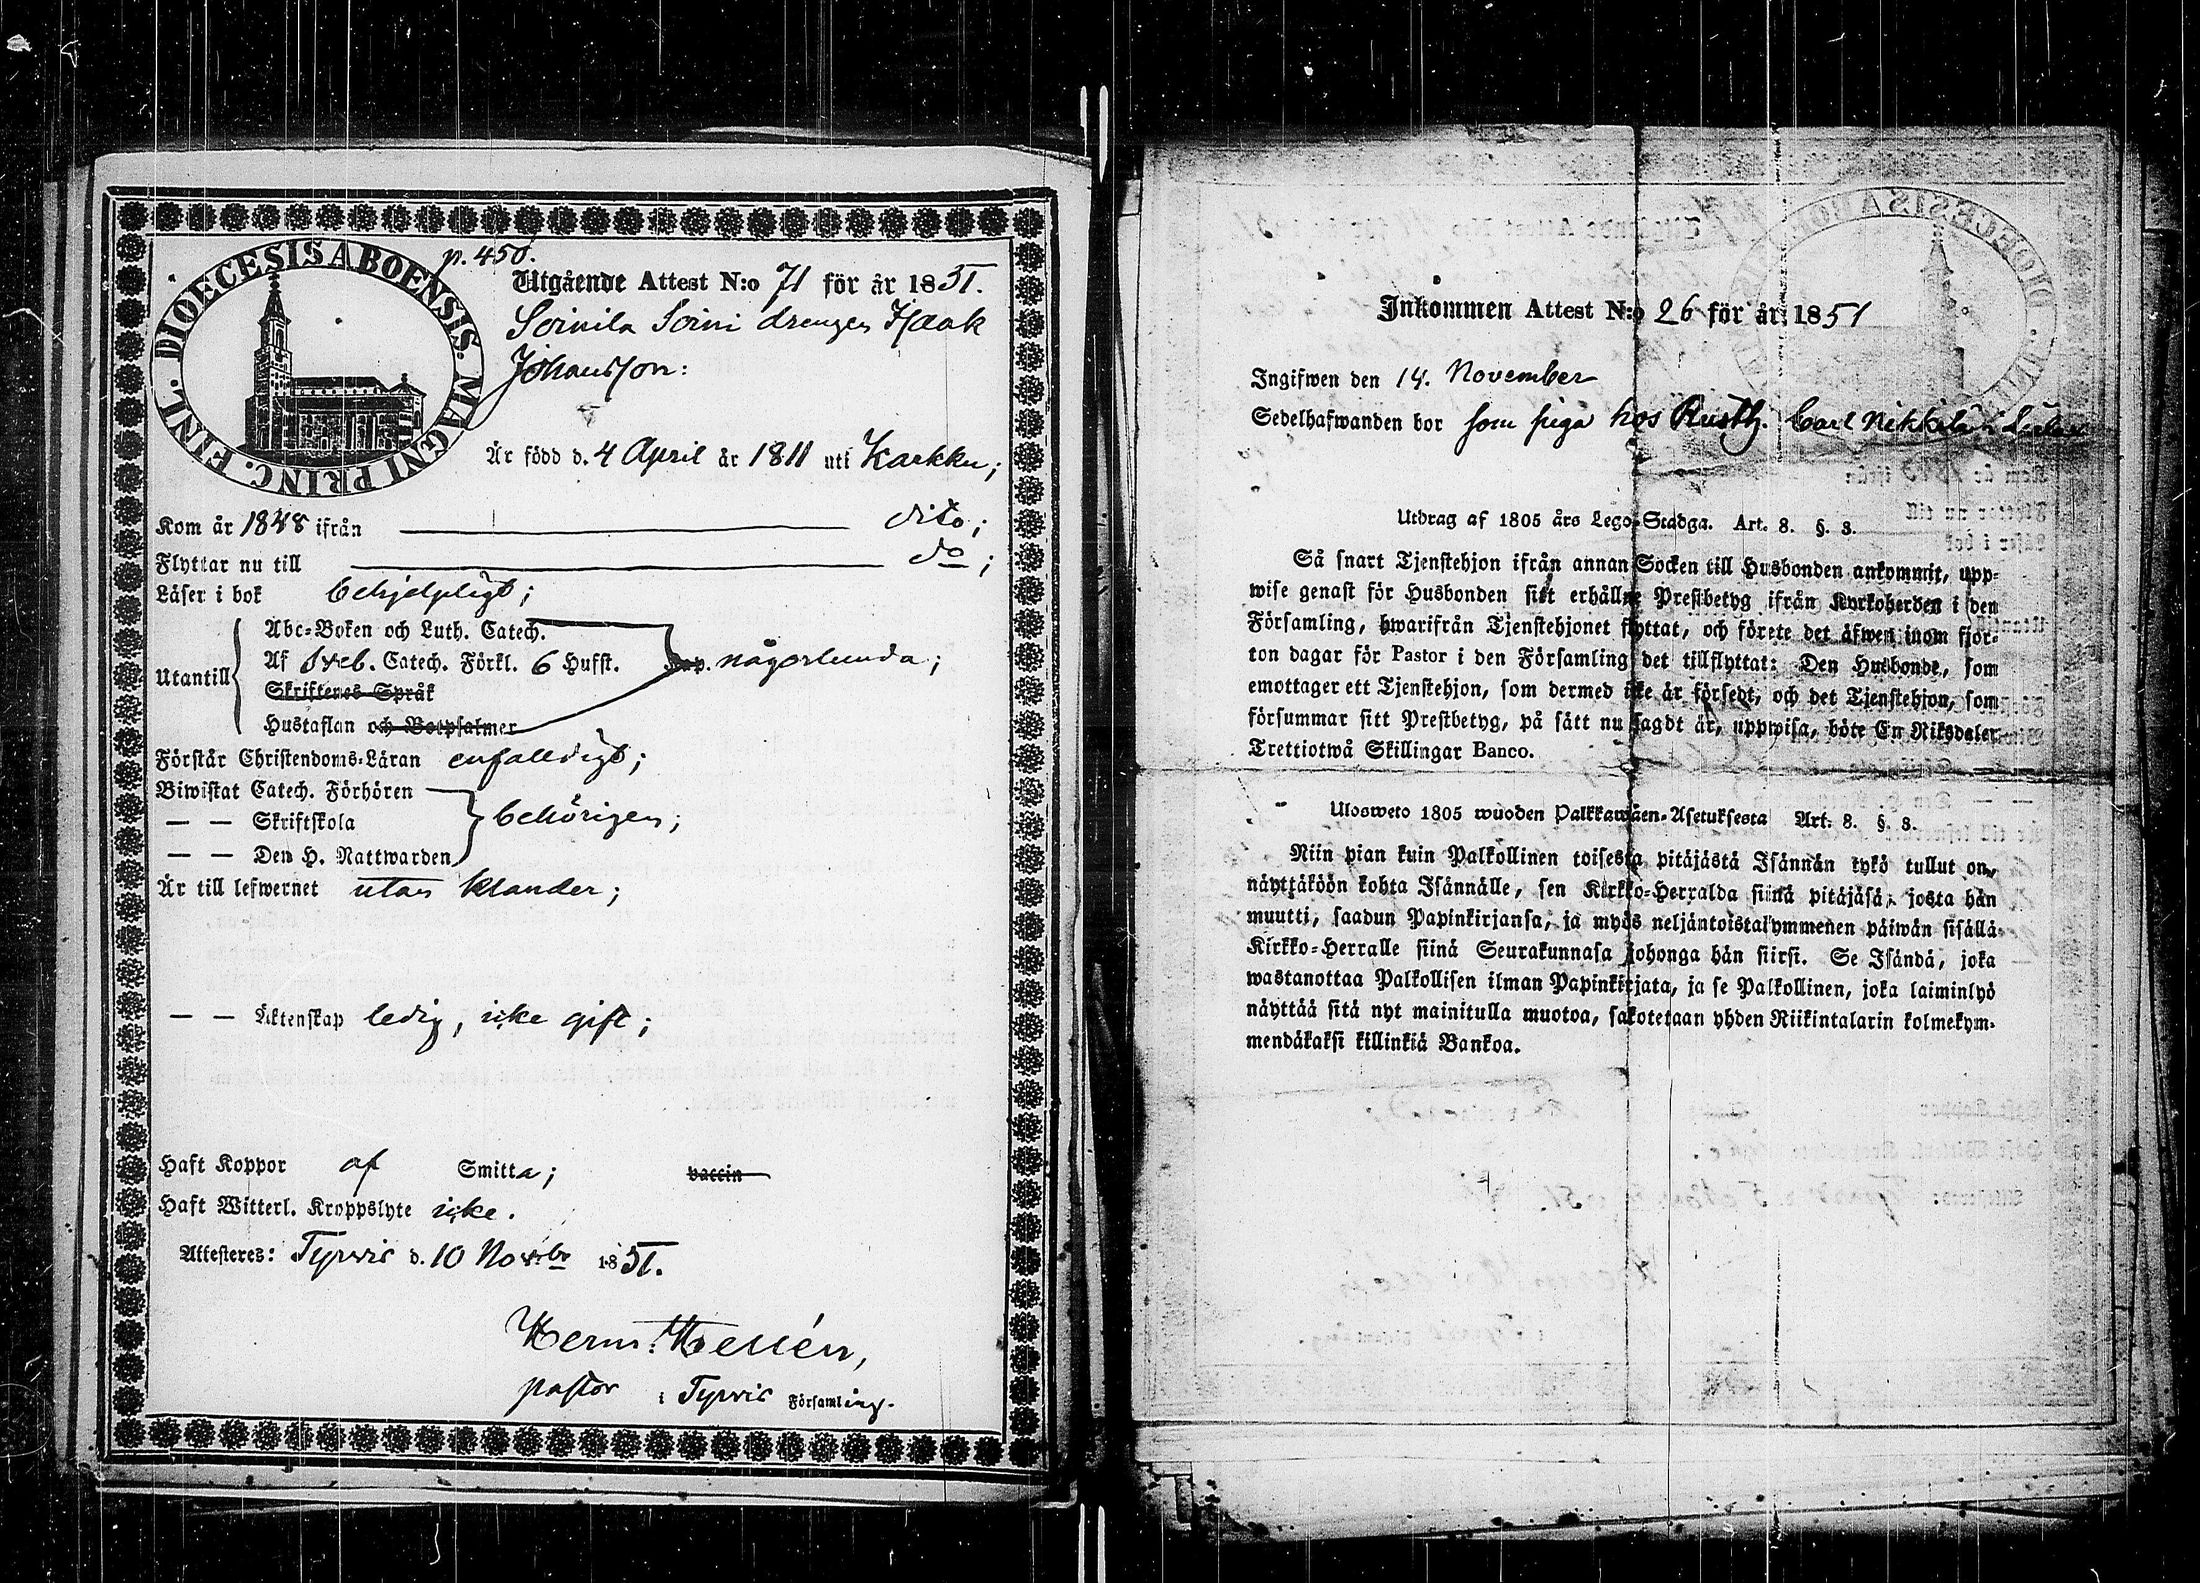 DIOECESIS ABOENSIS. MAGNI PRINC. FINL.
p. 450.
Utgående Attest N:o 71 för år 1851.
Soinila Soini drengen Isaak
Johansson:
Är född d. 4 April år 1811 uti Karkku;
Kom år 1848 ifrån dito;
Flyttar nu till do;
Läser i bok behjelpligt;
Utantill
Abc-Boken och Luth. Catech.
Af Sveb. Catech. Förkl. 6 Hufst. Kap. någorlunda;
Skriftenes Språk
Hustaflan och Botpsalmer
Förstår Christendoms-Läran enfalldigt;
Biwistat Catech. Förhören
— — Skriftskola behörigen;
— — Den H. Nattwarden
Är till lefwernet utan klander;
— — Äktenskap ledig, icke gift;
Haft Koppor af Smitta; vaccin
Haft Witterl. Kroppslyte icke.
Attesteres: Tyrvis d. 10 Novbr 1851.
Herm. Hellén,
pastor i Tyrvis Församling.
Inkommen Attest N:o 26 för år 1851
Ingifwen den 14. November
Sedelhafwanden bor som piga hos Rusth. Carl Nikkilä
Utdrag af 1805 års Lego-Stadga. Art. 8. §. 8.
Så snart Tjenstehjon ifrån annan Socken till Husbonden ankommit, upp-
wise genast för Husbonden sitt erhållne Prestbetyg ifrån Kyrkoherden i den
Församling, hwarifrån Tjenstehjonet flyttat, och förete det äfwen inom fjor-
ton dagar för Pastor i den Församling det tillflyttat: Den Husbonde, som
emottager ett Tjenstehjon, som dermed icke är försedt, och det Tjenstehjon, som
försummar sitt Prestbetyg, på sätt nu sagdt är, uppwisa, böte En Riksdaler
Trettiotwå Skillingar Banco.
Ulosweto 1805 wuoden Palkkawäen-Asetuksesta Art. 8. §. 8.
Niin pian kuin Palkollinen toisesta pitäjästä Isännän tykö tullut on,
näyttäköön kohta Isännälle, sen Kirkko-Herralda siinä pitäjäsä, josta hän
muutti, saadun Papinkirjansa, ja myös neljäntoistakymmenen päiwän sisällä
Kirkko-Herralle siinä Seurakunnasa johonga hän siirsi. Se Isändä, joka
wastanottaa Palkollisen ilman Papinkirjata, ja se Palkollinen, joka laiminlyö
näyttää sitä nyt mainitulla muotoa, sakotetaan yhden Riikintalarin kolmekym-
mendäkaksi killinkiä Bankoa.